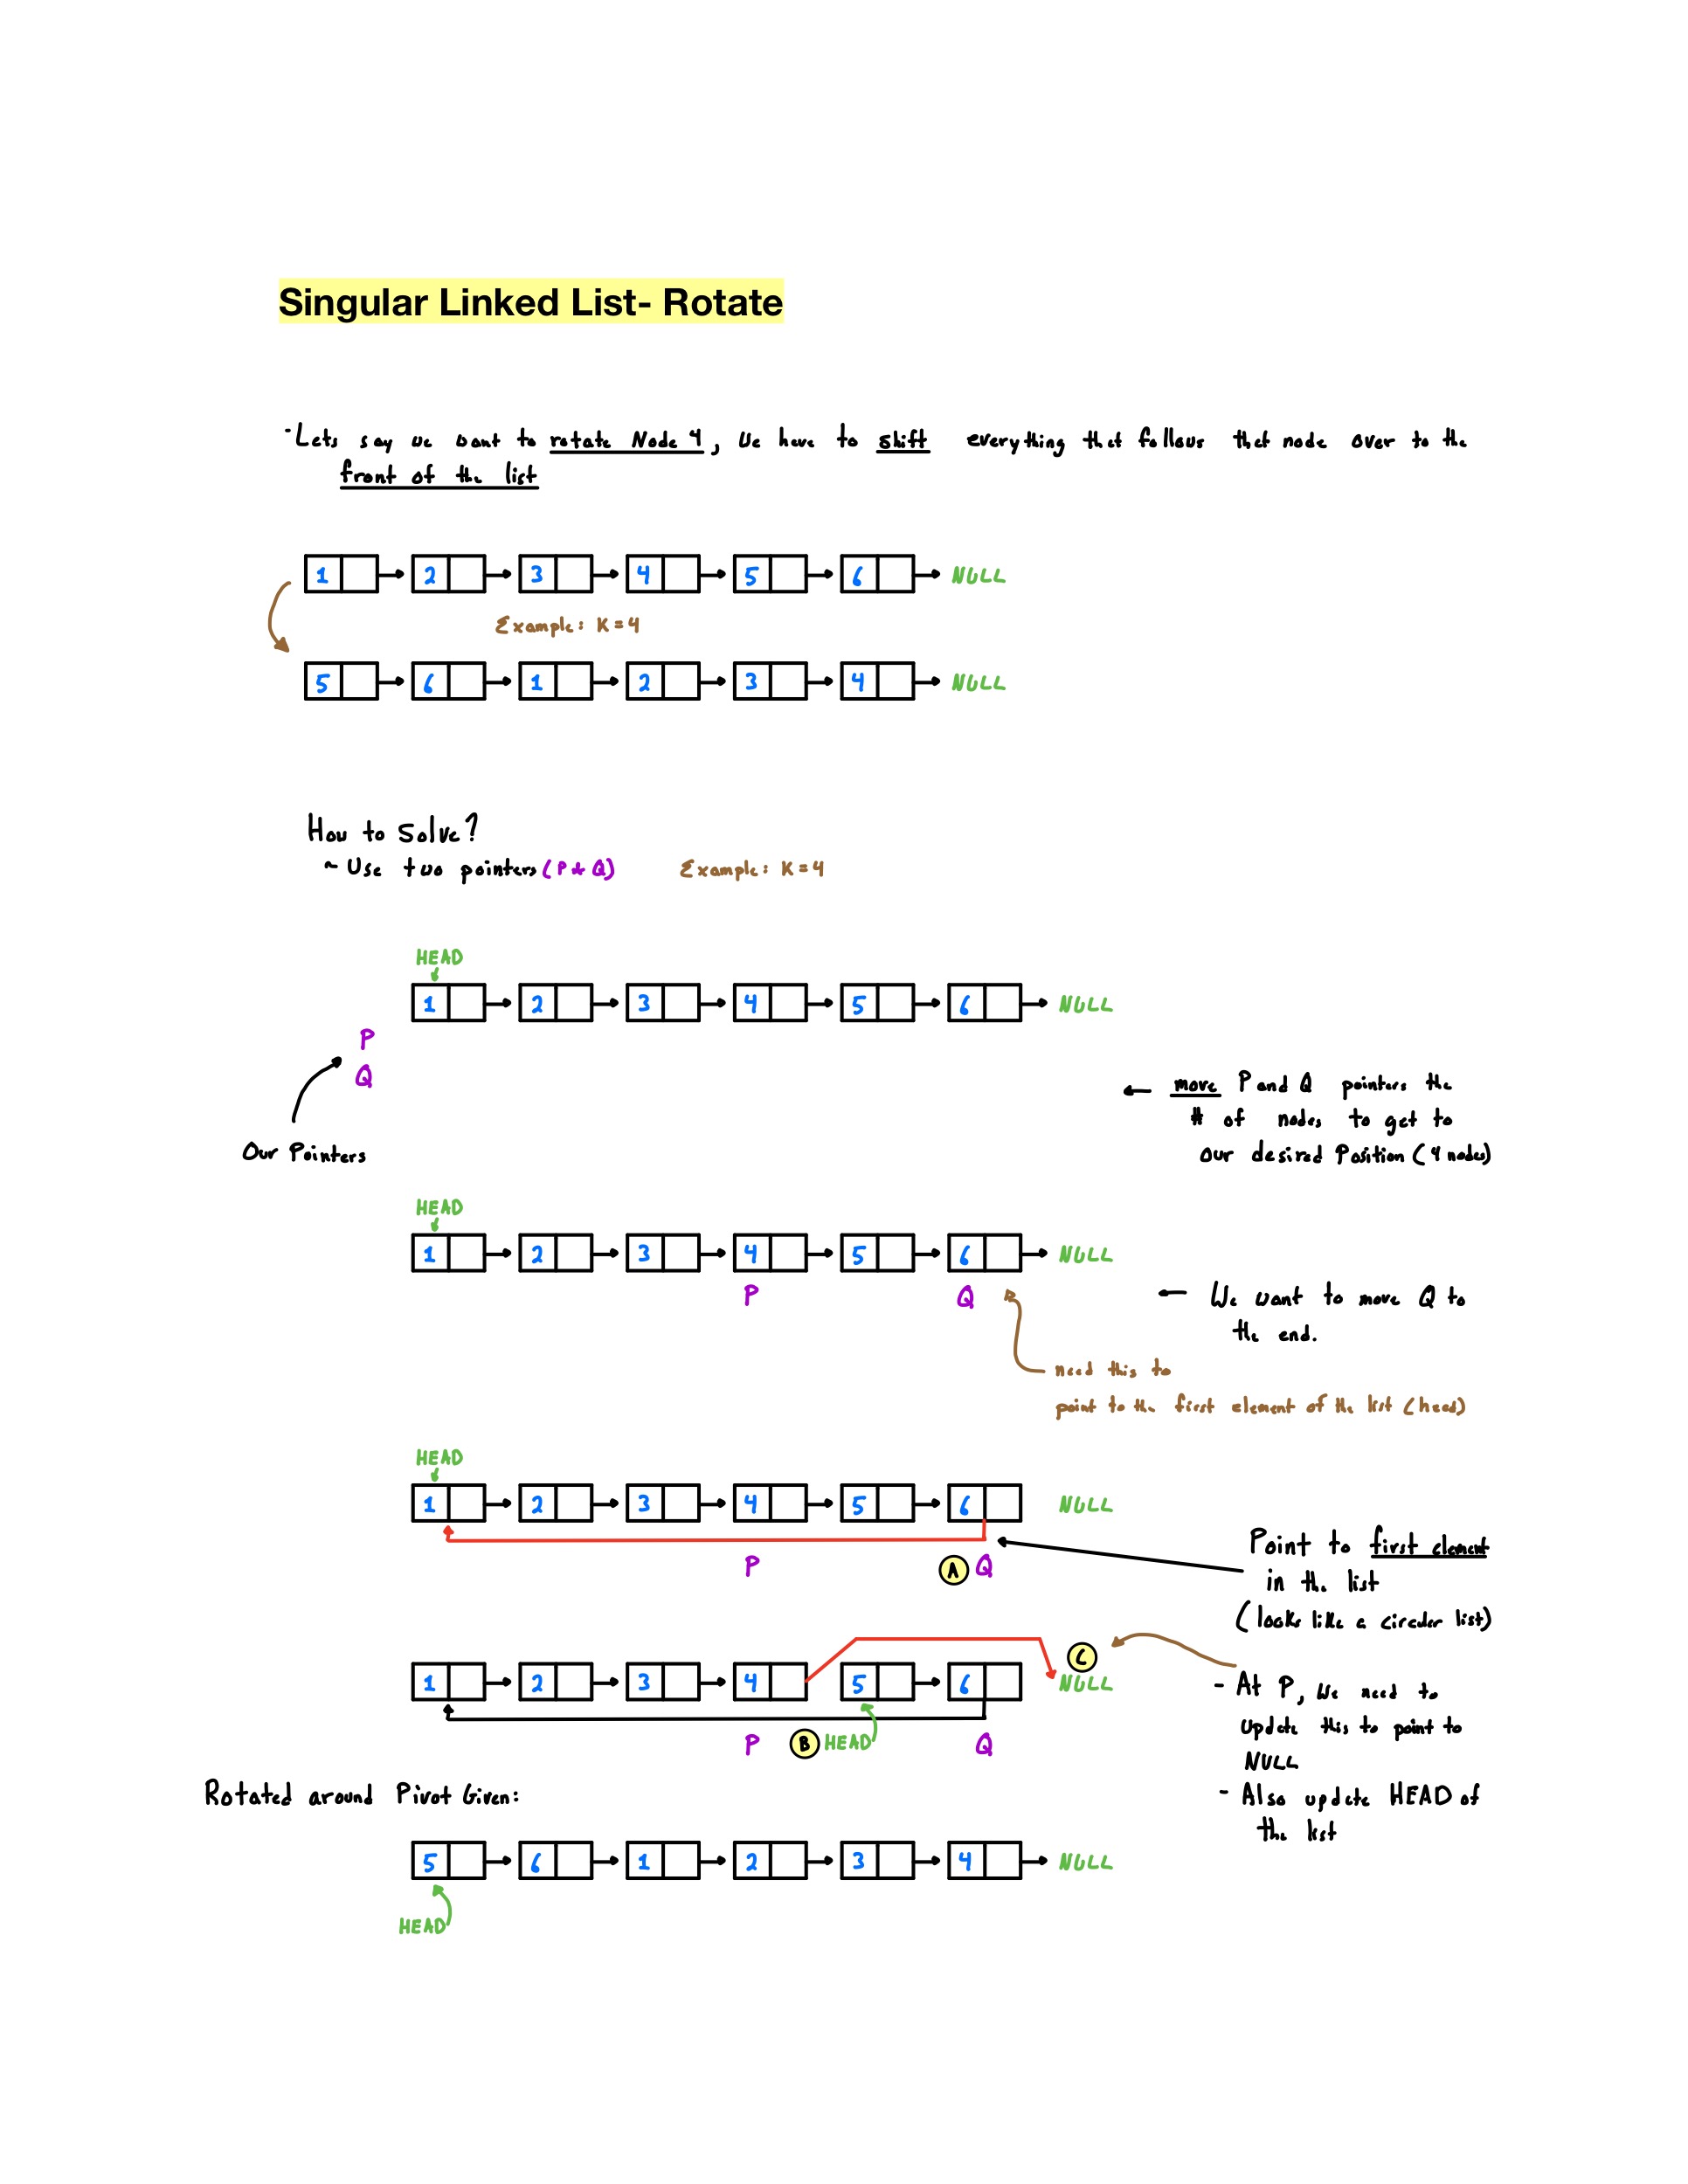 Singular Linked List- Rotate
- Lets say we want to rotate Node 4, we have to shift everything that follows that node over to the
front of the list
1 2 3 4 5 6 NULL
Example: K=4
5 6 1 2 3 4 NULL
How to solve?
~ Use two pointers (P * Q) Example: K=4
HEAD
1 2 3 4 5 6 NULL
P
Q
← move P and Q pointers the
# of nodes to get to
our desired Position (4 nodes)
Our Pointers
HEAD
1 2 3 4 5 6 NULL
P Q
← We want to move Q to
the end.
need this to
point to the first element of the list (head)
HEAD
1 2 3 4 5 6 NULL
P A Q
Point to first element
in the list
(looks like a circular list)
C
1 2 3 4 5 6 NULL
P B HEAD Q
- At P, we need to
update this to point to
NULL
- Also update HEAD of
the list
Rotated around Pivot Given:
5 6 1 2 3 4 NULL
HEAD